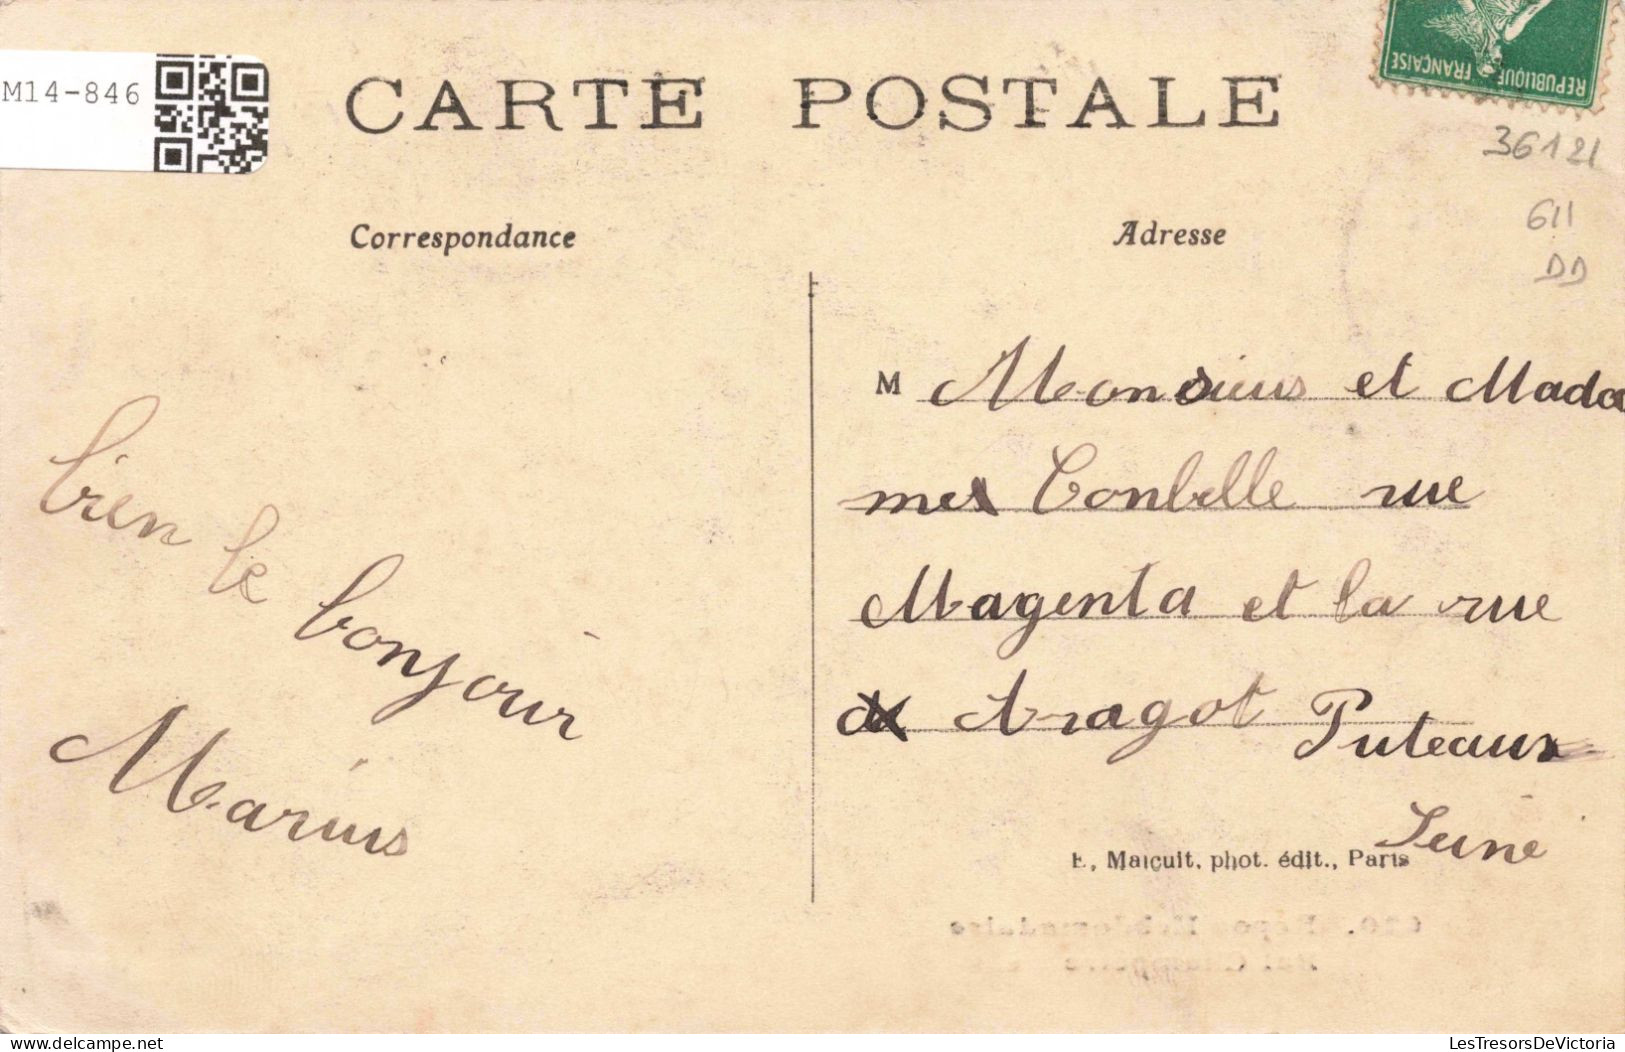 M14-846
CARTE POSTALE
REPUBLIQUE FRANÇAISE
36121
611
DD
Correspondance
Adresse
bien le bonjour
Marius
M Monsieur et Mada
me Conbelle rue
Magenta et la rue
Aragot Puteaux
Seine
E. Malcuit, phot. édit., Paris
LesTresorsDeVictoria
https://www.delcampe.net